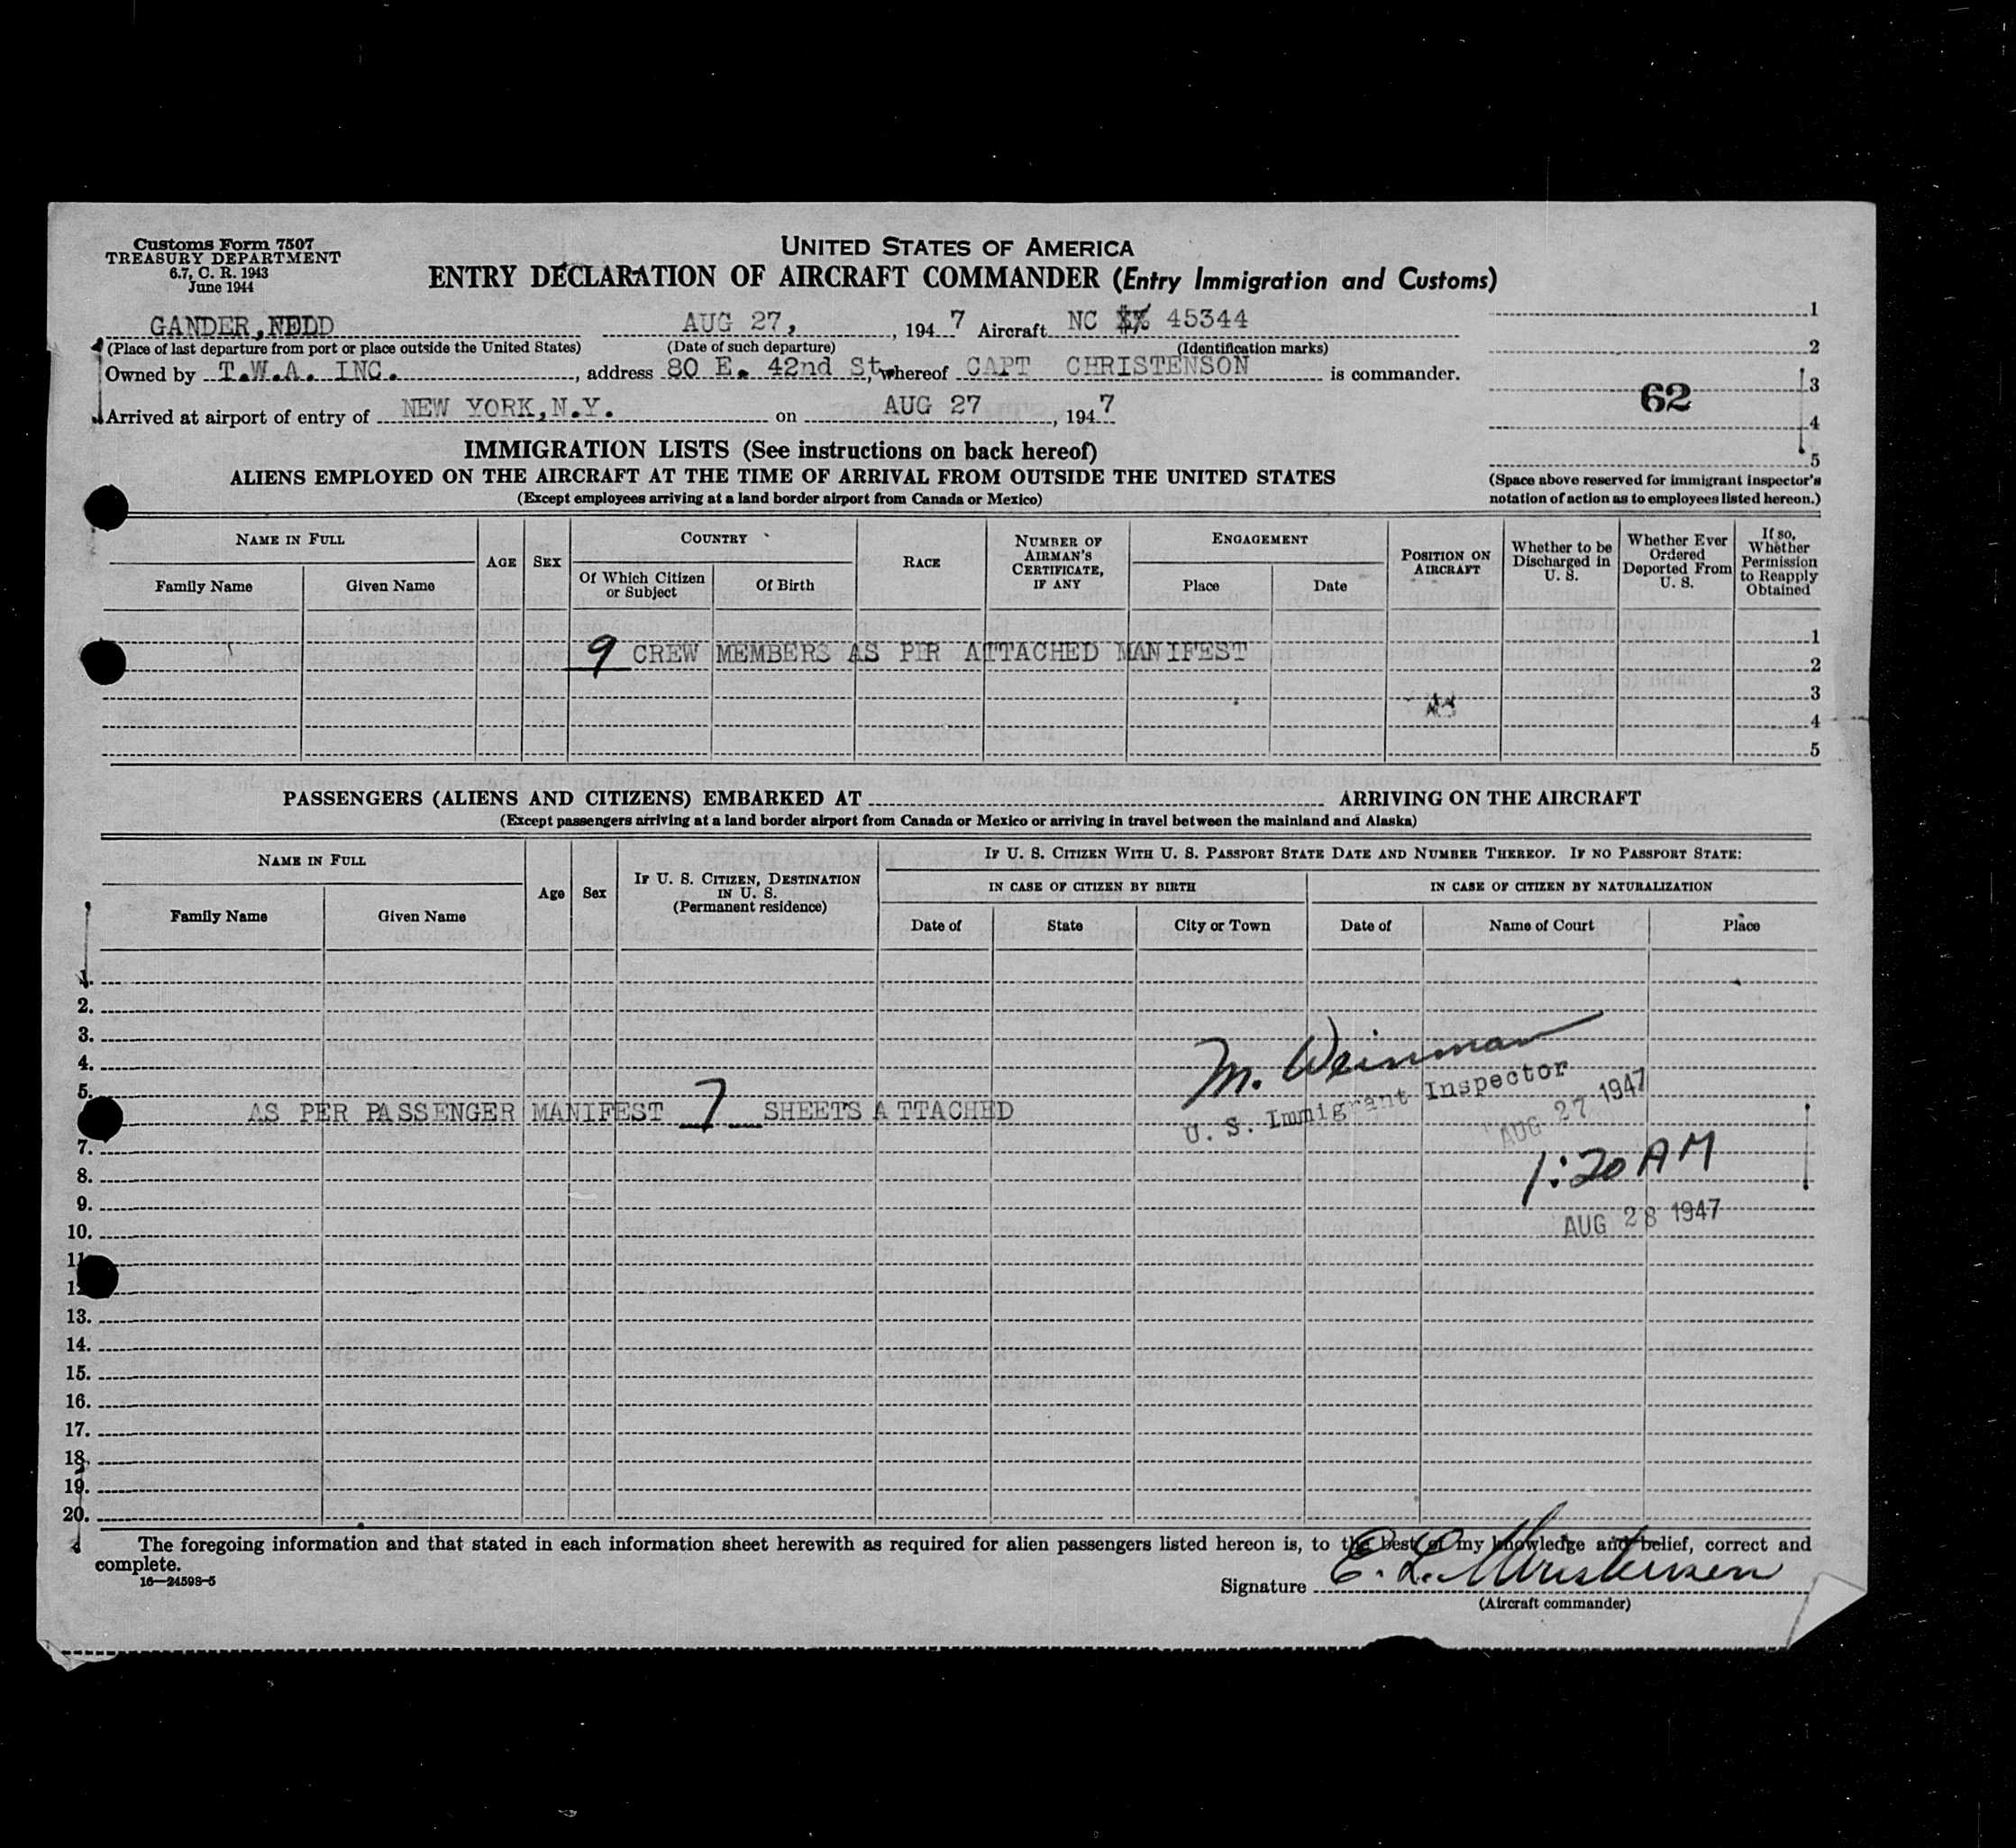 Customs Form 7507
TREASURY DEPARTMENT
6.7, C. R. 1943
June 1944
UNITED STATES OF AMERICA
ENTRY DECLARATION OF AIRCRAFT COMMANDER (Entry Immigration and Customs)
GANDER, NFDD AUG 27, , 194 7 Aircraft NC 45344
(Place of last departure from port or place outside the United States) (Date of such departure) (Identification marks)
Owned by T.W.A. INC. , address 80 E. 42nd St, whereof CAPT CHRISTENSON is commander.
Arrived at airport of entry of NEW YORK, N.Y. on AUG 27 , 194 7
1
2
3
62
4
5
(Space above reserved for immigrant inspector's
notation of action as to employees listed hereon.)
IMMIGRATION LISTS (See instructions on back hereof)
ALIENS EMPLOYED ON THE AIRCRAFT AT THE TIME OF ARRIVAL FROM OUTSIDE THE UNITED STATES
(Except employees arriving at a land border airport from Canada or Mexico)
NAME IN FULL
Family Name Given Name
AGE
SEX
COUNTRY
Of Which Citizen or Subject
Of Birth
RACE
NUMBER OF AIRMAN'S CERTIFICATE, IF ANY
ENGAGEMENT
Place Date
POSITION ON AIRCRAFT
Whether to be Discharged in U. S.
Whether Ever Ordered Deported From U. S.
If so, Whether Permission to Reapply Obtained
1
9 CREW MEMBERS AS PER ATTACHED MANIFEST
2
3
4
5
PASSENGERS (ALIENS AND CITIZENS) EMBARKED AT ARRIVING ON THE AIRCRAFT
(Except passengers arriving at a land border airport from Canada or Mexico or arriving in travel between the mainland and Alaska)
NAME IN FULL
Family Name Given Name
Age
Sex
IF U. S. CITIZEN, DESTINATION IN U. S.
(Permanent residence)
IF U. S. CITIZEN WITH U. S. PASSPORT STATE DATE AND NUMBER THEREOF. IF NO PASSPORT STATE:
IN CASE OF CITIZEN BY BIRTH IN CASE OF CITIZEN BY NATURALIZATION
Date of State City or Town Date of Name of Court Place
1.
2.
3.
4.
5.
M. Weinman
U. S. Immigrant Inspector
AUG 27 1947
AS PER PASSENGER MANIFEST 7 SHEETS ATTACHED
7.
1:20 AM
8.
9.
AUG 28 1947
10.
11
12
13.
14.
15.
16.
17.
18.
19.
20.
The foregoing information and that stated in each information sheet herewith as required for alien passengers listed hereon is, to the best of my knowledge and belief, correct and
complete.
16—24598-5
Signature E. L. Christensen
(Aircraft commander)